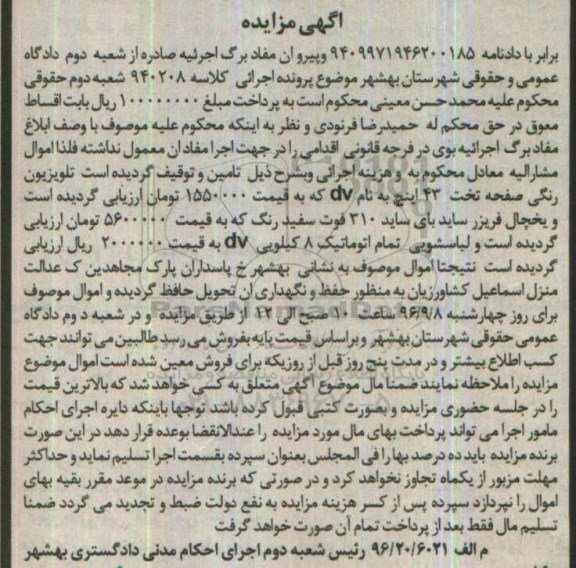 آگهی مزایده
برابر با دادنامه ۹۴۰۹۹۷۱۹۴۶۲۰۰۱۸۵ وپیرو ان مفاد برگ اجرئیه صادره از شعبه دوم دادگاه
عمومی و حقوقی شهرستان بهشهر موضوع پرونده اجرائی کلاسه ۹۴۰۲۰۸ شعبه دوم حقوقی
محکوم علیه محمد حسن معینی محکوم است به پرداخت مبلغ ۱۰۰۰۰۰۰۰۰ ریال بابت اقساط
معوق در حق محکم له حمیدرضا فرنودی و نظر به اینکه محکوم علیه موصوف با وصف ابلاغ
مفاد برگ اجرائیه بوی در فرجه قانونی اقدامی را در جهت اجرا مفاد ان معمول نداشته فلذا اموال
مشارالیه معادل محکوم به و هزینه اجرائی وبشرح ذیل تامین و توقیف گردیده است تلویزیون
رنگی صفحه تخت ۴۳ اینچ به نام dv که به قیمت ۱۵۵۰۰۰۰ تومان ارزیابی گردیده است
و یخچال فریزر ساید بای ساید ۳۱۰ فوت سفید رنگ که به قیمت ۵۶۰۰۰۰۰ تومان ارزیابی
گردیده است و لباسشویی تمام اتوماتیک ۸ کیلویی dv به قیمت ۲۰۰۰۰۰۰ ریال ارزیابی
گردیده است نتیجتا اموال موصوف به نشانی بهشهر خ پاسداران پارک مجاهدین ک عدالت
منزل اسماعیل کشاورزیان به منظور حفظ و نگهداری ان تحویل حافظ گردیده و اموال موصوف
برای روز چهارشنبه ۹۶/۹/۸ ساعت ۱۰ صبح الی ۱۲ از طریق مزایده و در شعبه دوم دادگاه
عمومی حقوقی شهرستان بهشهر و براساس قیمت پایه بفروش می رسد طالبین می توانند جهت
کسب اطلاع بیشتر و در مدت پنج روز قبل از روزیکه برای فروش معین شده است اموال موضوع
مزایده را ملاحظه نمایند ضمنا مال موضوع آگهی متعلق به کسی خواهد شد که بالاترین قیمت
را در جلسه حضوری مزایده و بصورت کتبی قبول کرده باشد توجها باینکه دایره اجرای احکام
مامور اجرا می تواند پرداخت بهای مال مورد مزایده را عندالانقضا بوعده قرار دهد در این صورت
برنده مزایده باید ده درصد بها را فی المجلس بعنوان سپرده بقسمت اجرا تسلیم نماید و حداکثر
مهلت مزبور از یکماه تجاوز نخواهد کرد و در صورتی که برنده مزایده در موعد مقرر بقیه بهای
اموال را نپردازد سپرده پس از کسر هزینه مزایده به نفع دولت ضبط و تجدید می گردد ضمنا
تسلیم مال فقط بعد از پرداخت تمام آن صورت خواهد گرفت
م الف ۹۶/۲۰/۶۰۲۱ رئیس شعبه دوم اجرای احکام مدنی دادگستری بهشهر